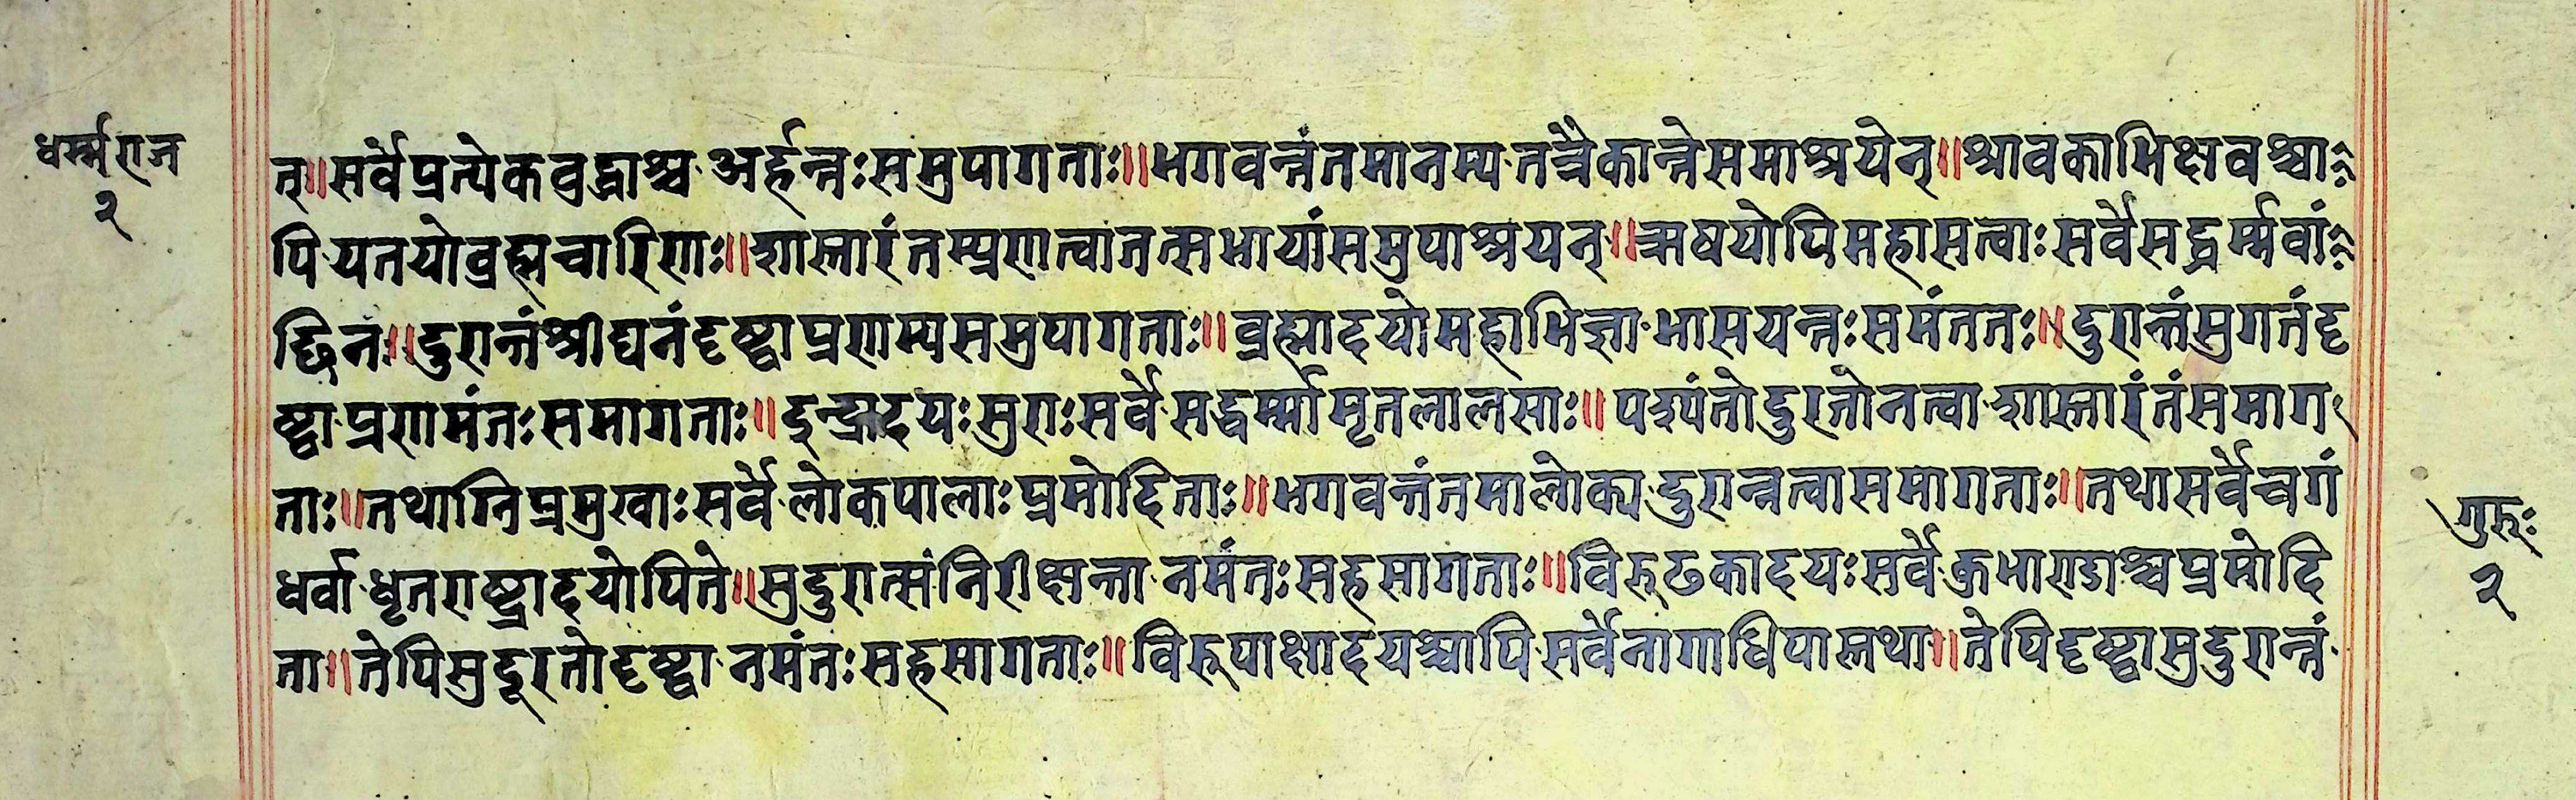 धर्म्मराज
२
त्॥सर्वेप्रत्येकवुद्धाश्च·अर्हन्तःसमुपागताः॥भगवन्तंतमानम्य·तत्रैकान्तेसमाश्रयेत्॥श्रावकाभिक्षवश्चा
पि·यतयोव्रह्मचारिणः॥शास्तारंतम्प्रणत्वातत्सभायांसमुपाश्रयन्॥ऋषयोपिमहासत्वाःसर्वेसद्धर्म्मवां
छिनः॥दुरान्तंश्रीघनंदृष्ट्वाप्रणम्यसमुपागताः॥व्रह्मादयोमहाभिज्ञा·भासयन्तःसमंततः॥दुरान्तंसुगतंदृ
ष्ट्वा·प्रणमंतःसमागताः॥इन्द्रादयःसुराःसर्वे·सद्धर्म्मामृतलालसाः॥पश्यंतोदुरतोनत्वा·शास्तारंतंसमाग
ताः॥तथाग्निप्रमुखाःसर्वे·लोकपालाःप्रमोदिताः॥भगवन्तंतमालोक्य·दुरान्नत्वासमागताः॥तथासर्वेचगं
धर्वा·धृतराष्ट्रादयोपिते॥सुदुरात्संनिरीक्षन्ता·नमंतःसहसागताः॥विरूढकादयःसर्वे·कुभाण्डाश्चप्रमोदि
ता॥तेपिसुदूरतोदृष्ट्वा·नमंतःसहसागताः॥विरूपाक्षादयश्चापि·सर्वेनागाधिपास्तथा॥तेपिदृष्ट्वासुदुरान्तं·
गुरुः
२